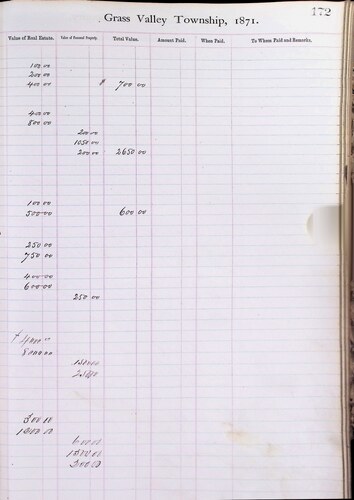 172
Grass Valley Township, 1871.
Value of Real Estate. Value of Personal Property. Total Value. Amount Paid. When Paid. To Whom Paid and Remarks.
100 00
200 00
400 00 $ 700 00
400 00
800 00
200 00
1050 00
200 00 2650 00
100 00
500 00 600 00
250 00
750 00
400 00
600 00
250 00
8000 00
300 00
600 00
300 00